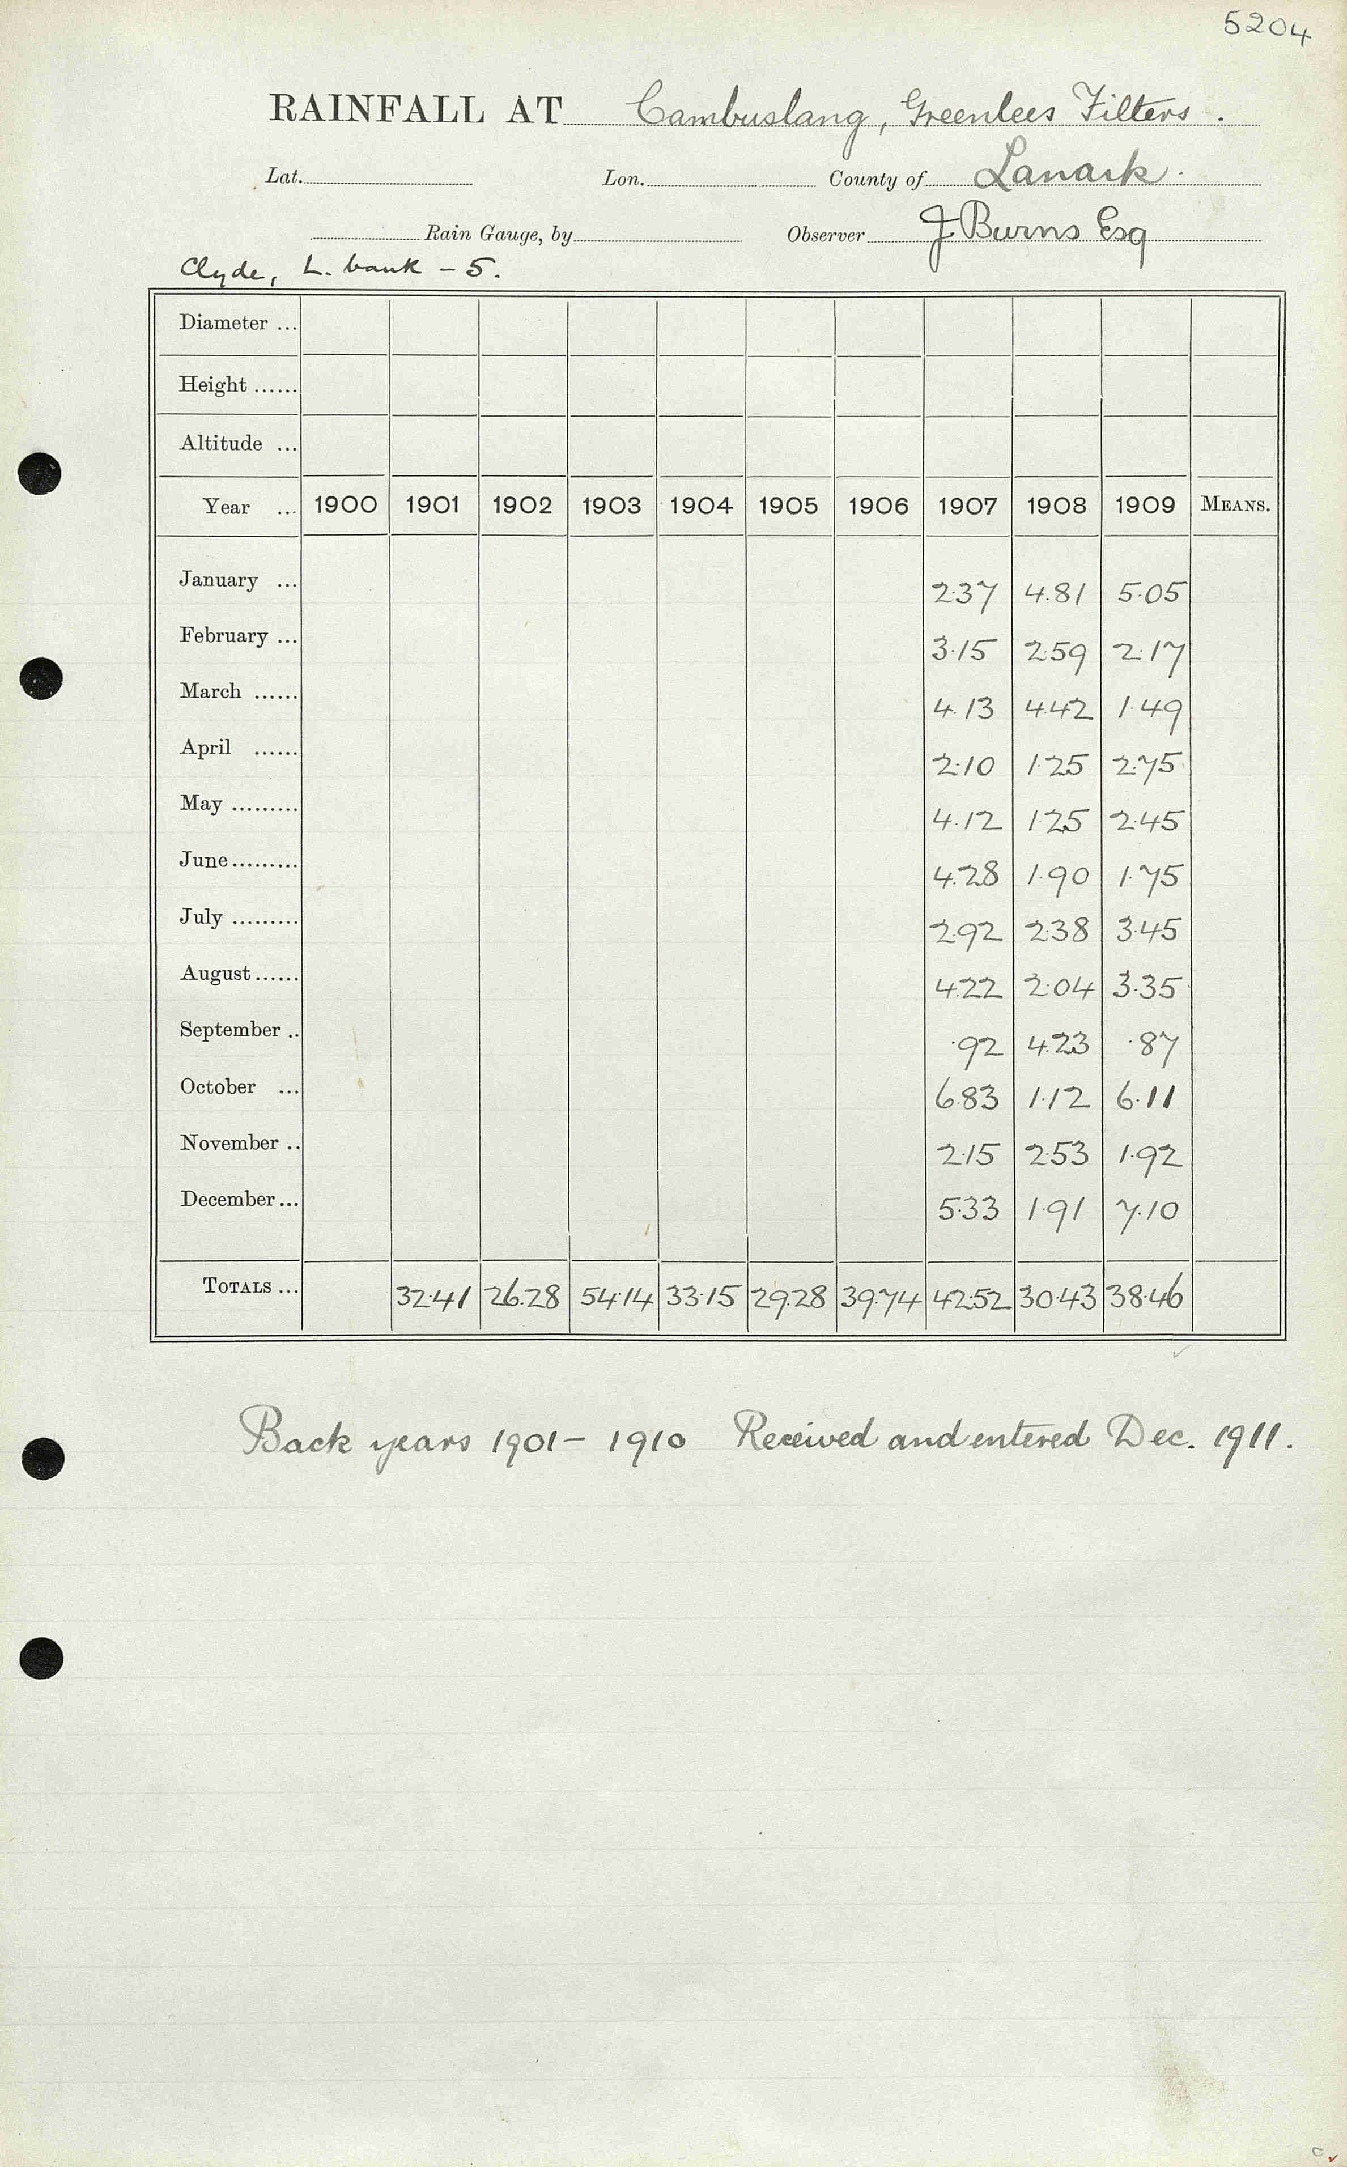 5204
RAINFALL AT Cambuslang, Greenlees Filters.
Lat. Lon. County of Lanark.
Rain Gauge, by Observer J Burns Esq
Clyde, L. bank - 5.
Diameter ...
Height ......
Altitude ...
Year ... 1900 1901 1902 1903 1904 1905 1906 1907 1908 1909 MEANS.
January ... 2.37 4.81 5.05
February ... 3.15 2.59 2.17
March ...... 4.13 4.42 1.49
April ...... 2.10 1.25 2.75
May ......... 4.12 1.25 2.45
June ......... 4.28 1.90 1.75
July ......... 2.92 2.38 3.45
August ...... 4.22 2.04 3.35
September .. .92 4.23 .87
October ... 6.83 1.12 6.11
November .. 2.15 2.53 1.92
December ... 5.33 1.91 7.10
TOTALS ... 32.41 26.28 54.14 33.15 29.28 39.74 42.52 30.43 38.46
Back years 1901 - 1910 Received and entered Dec. 1911.